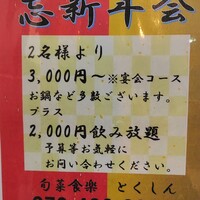 忘新年会
2名様より
3,000円～※宴会コース
お鍋など多数ございます。
プラス
2,000円飲み放題
予算等お気軽に
お問い合わせください。
旬菜食樂 とくしん